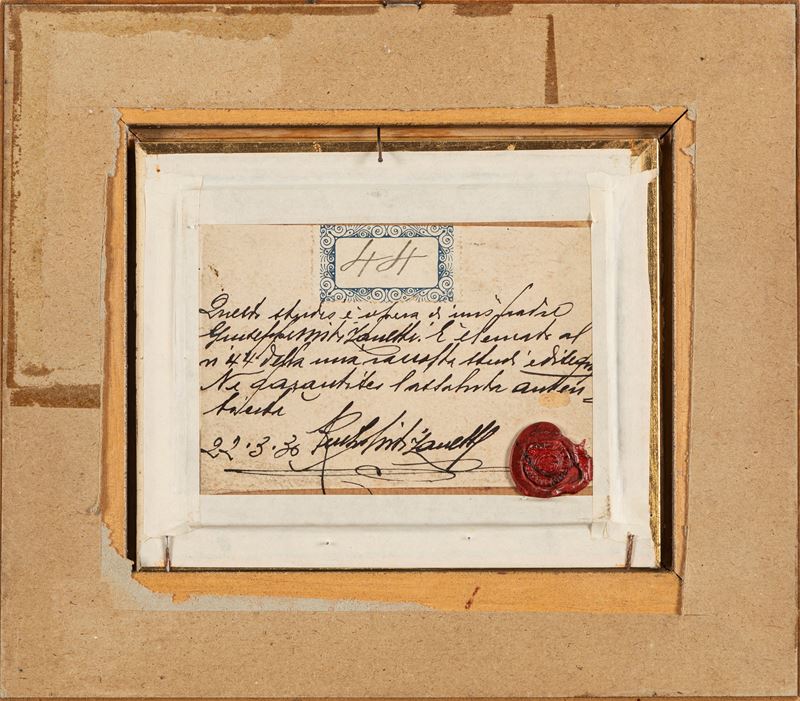 44
Questo studio è opera di mio padre
Giuseppe Miti Zanetti. È elencato al
n 44 della mia raccolta studi e disegni
Ne garantisco l'assoluta auten=
ticità
22·3·36 Miti Zanetti